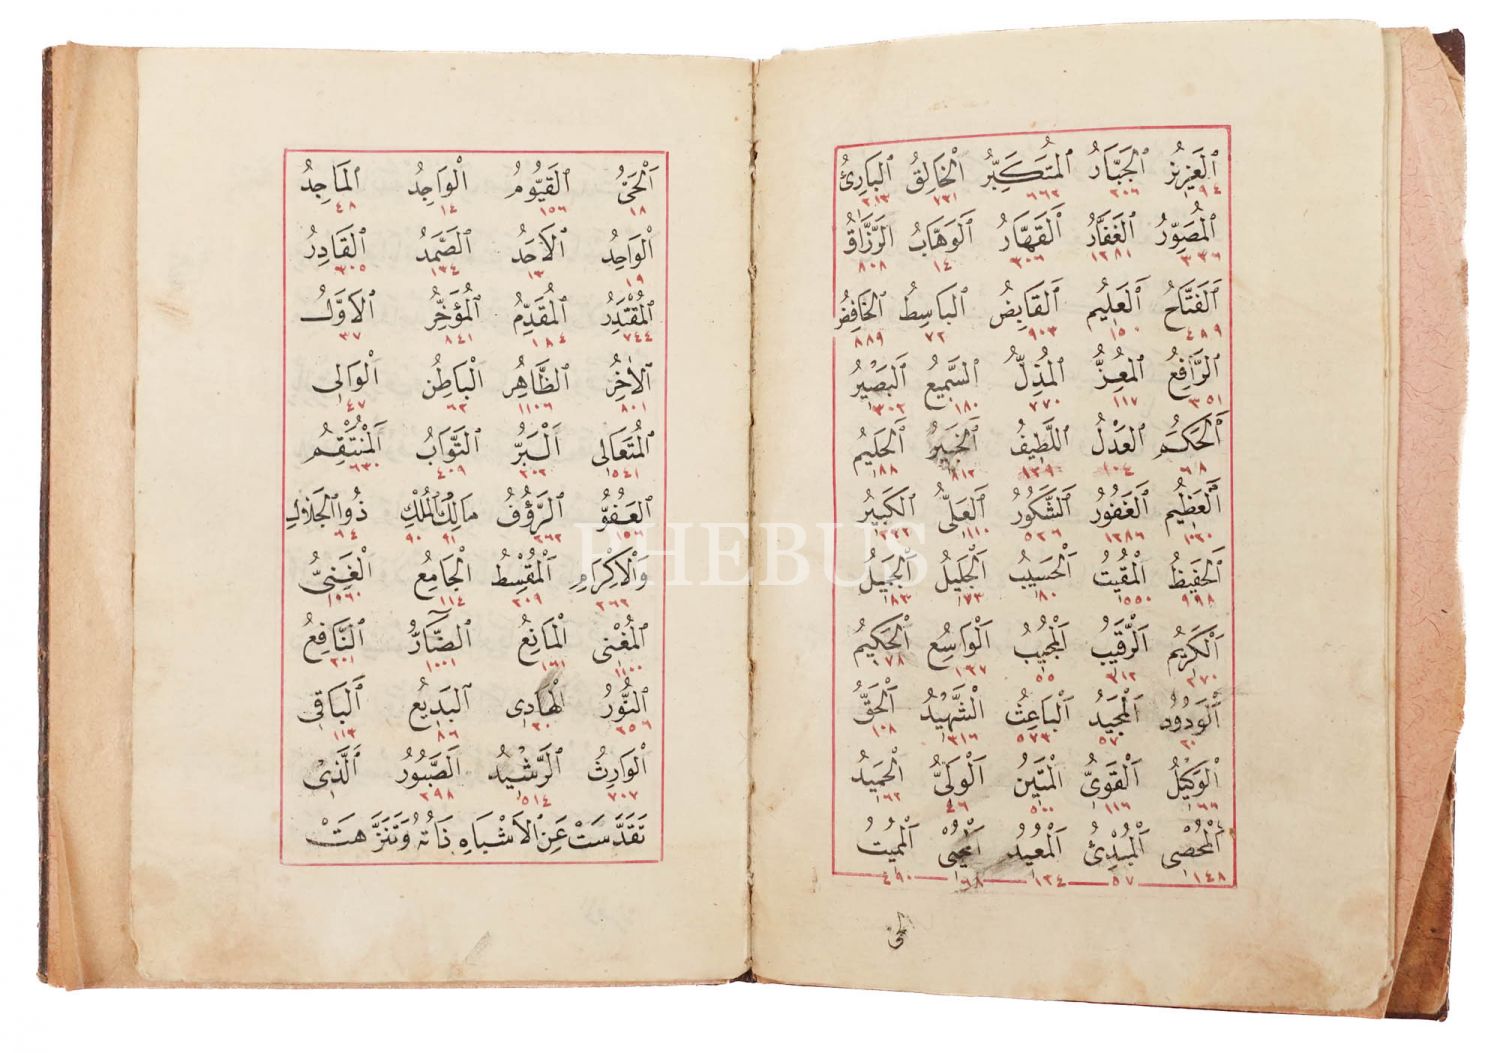 اَلْعَزِيزُ اَلْجَبَّارُ اَلْمُتَكَبِّرُ اَلْخَالِقُ اَلْبَارِئُ
٩٤ ٢٠٦ ٦٦٢ ٧٣١ ٢١٣
اَلْمُصَوِّرُ اَلْغَفَّارُ اَلْقَهَّارُ اَلْوَهَّابُ اَلرَّزَّاقُ
٣٣٦ ١٢٨١ ٣٠٦ ١٤ ٨٠٨
اَلْفَتَّاحُ اَلْعَلِيمُ اَلْقَابِضُ اَلْبَاسِطُ اَلْخَافِضُ
٤٨٩ ١٥٠ ٩٠٣ ٧٢ ٨٨٩
اَلرَّافِعُ اَلْمُعِزُّ اَلْمُذِلُّ اَلسَّمِيعُ اَلْبَصِيرُ
٣٥١ ١١٧ ٧٧٠ ١٨٠ ٣٠٢
اَلْحَكَمُ اَلْعَدْلُ اَللَّطِيفُ اَلْخَبِيرُ اَلْحَلِيمُ
٦٨ ١٠٤ ١٢٩ ٨١٢ ٨٨
اَلْعَظِيمُ اَلْغَفُورُ اَلشَّكُورُ اَلْعَلِىُّ اَلْكَبِيرُ
١٠٢٠ ١٢٨٦ ٥٢٦ ١١٠ ٢٣٢
اَلْحَفِيظُ اَلْمُقِيتُ اَلْحَسِيبُ اَلْجَلِيلُ اَلْجَمِيلُ
٩٩٨ ٥٥٠ ٨٠ ٧٣ ٨٣
اَلْكَرِيمُ اَلرَّقِيبُ اَلْمُجِيبُ اَلْوَاسِعُ اَلْحَكِيمُ
٢٧٠ ٣١٢ ٥٥ ١٣٧ ٧٨
اَلْوَدُودُ اَلْمَجِيدُ اَلْبَاعِثُ اَلشَّهِيدُ اَلْحَقُّ
٢٠ ٥٧ ٥٧٣ ٣١٦ ١٠٨
اَلْوَكِيلُ اَلْقَوِىُّ اَلْمَتِينُ اَلْوَلِىُّ اَلْحَمِيدُ
٦٦ ١١٦ ٥٠٠ ٤٦ ٦٢
اَلْمُحْصِى اَلْمُبْدِئُ اَلْمُعِيدُ اَلْمُحْيِى اَلْمُمِيتُ
١٤٨ ٥٧ ١٢٤ ٦٨ ٤٩٠
الحى
اَلْحَىُّ اَلْقَيُّومُ اَلْوَاجِدُ اَلْمَاجِدُ
١٨ ١٥٦ ١٤ ٤٨
اَلْوَاحِدُ اَلْاَحَدُ اَلصَّمَدُ اَلْقَادِرُ
١٩ ١٣ ١٣٤ ٣٠٥
اَلْمُقْتَدِرُ اَلْمُقَدِّمُ اَلْمُؤَخِّرُ اَلْاَوَّلُ
٧٤٤ ١٨٤ ٨٤١ ٣٧
اَلْاٰخِرُ اَلظَّاهِرُ اَلْبَاطِنُ اَلْوَالِى
٨٠١ ١١٠٦ ٦٢ ٤٧
اَلْمُتَعَالِى اَلْبَرُّ اَلتَّوَّابُ اَلْمُنْتَقِمُ
٥٤١ ٢٠٢ ٤٠٩ ٦٣٠
اَلْعَفُوُّ اَلرَّؤُفُ مَالِكُ الْمُلْكِ ذُوالْجَلَالِ
١٥٦ ٢٨٦ ٩١ ٩٠ ٦٤
وَالْاِكْرَامِ اَلْمُقْسِطُ اَلْجَامِعُ اَلْغَنِىُّ
٢٦٢ ٢٠٩ ١١٤ ١٠٦٠
اَلْمُغْنِى اَلْمَانِعُ اَلضَّآرُّ اَلنَّافِعُ
١١٠٠ ١٦١ ١٠٠١ ٢٠١
اَلنُّورُ اَلْهَادِى اَلْبَدِيعُ اَلْبَاقِى
٢٥٦ ٢٠ ٨٦ ١١٣
اَلْوَارِثُ اَلرَّشِيدُ اَلصَّبُورُ اَلَّذِى
٧٠٧ ٥١٤ ٢٩٨
تَقَدَّسَتْ عَنِ الْاَشْبَاهِ ذَاتُهُ وَتَنَزَّهَتْ
PHEBUS